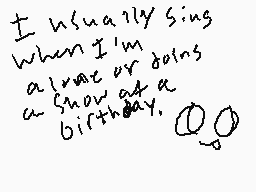 I usually sing
when I'm
alone or doing
a show at a
birthday.